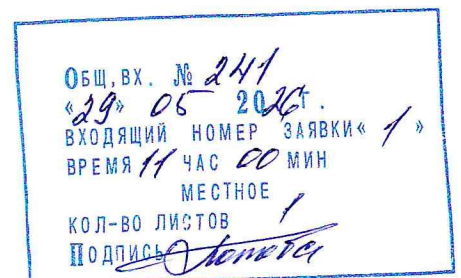 Общ. вх. № 241
«29» 05 2026 г.
ВХОДЯЩИЙ НОМЕР ЗАЯВКИ« 1 »
ВРЕМЯ 11 ЧАС 00 МИН
МЕСТНОЕ
КОЛ-ВО ЛИСТОВ 1
Подпись